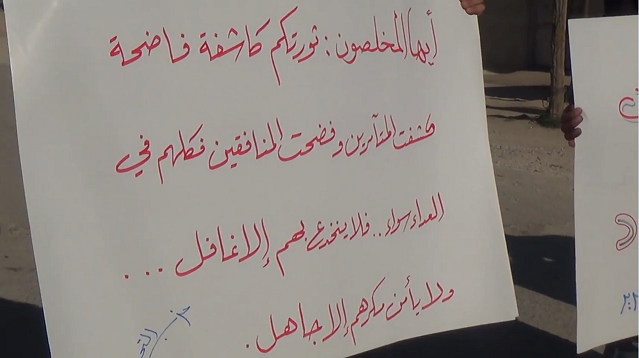 أيها المخلصون: ثورتكم كاشفة فاضحة
كشفت المتآمرين وفضحت المنافقين فكلهم في
العداء سواء.. فلا ينخدع بهم إلا غافل ...
ولا يأمن مكرهم إلا جاهل.